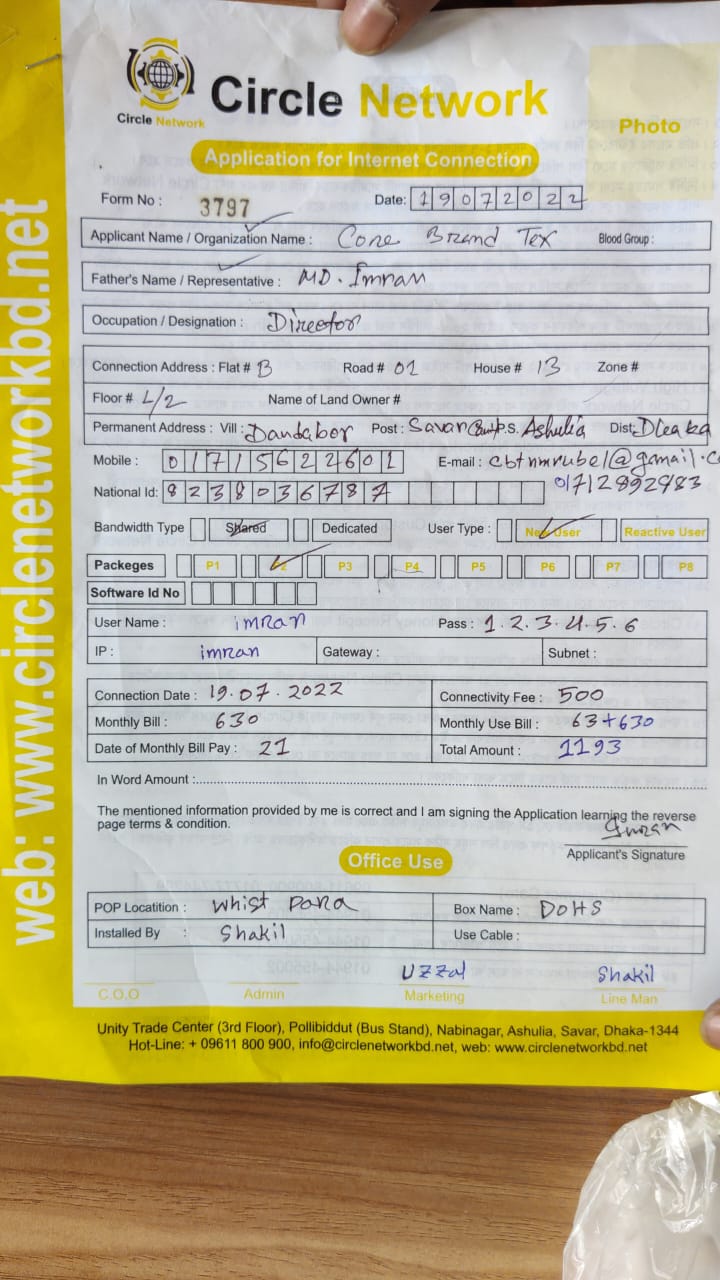 web: www.circlenetworkbd.net
Circle Network
Circle Network
Photo
Application for Internet Connection
Form No : 3797 Date: 19072022
Applicant Name / Organization Name : Core Brand Tex Blood Group :
Father's Name / Representative : MD. Imran
Occupation / Designation : Director
Connection Address : Flat # B Road # 01 House # 13 Zone #
Floor # L/2 Name of Land Owner #
Permanent Address : Vill : Dandabor Post : Savar Cant P.S. Ashulia Dist. Dhaka
Mobile : 01715622601 E-mail : cbtnmrubel@gmail.c
National Id: 8238036787 01712892983
Bandwidth Type Shared Dedicated User Type : New User Reactive User
Packeges P1 P2 P3 P4 P5 P6 P7 P8
Software Id No
User Name : imran Pass : 1.2.3.4.5.6
IP : imran Gateway : Subnet :
Connection Date : 19.07.2022 Connectivity Fee : 500
Monthly Bill : 630 Monthly Use Bill : 63+630
Date of Monthly Bill Pay : 21 Total Amount : 1193
In Word Amount :
The mentioned information provided by me is correct and I am signing the Application learning the reverse
page terms & condition.
Imran
Applicant's Signature
Office Use
POP Locatition : Whist Para Box Name : DOHS
Installed By : Shakil Use Cable :
Uzzal Shakil
C.O.O Admin Marketing Line Man
Unity Trade Center (3rd Floor), Pollibiddut (Bus Stand), Nabinagar, Ashulia, Savar, Dhaka-1344
Hot-Line: + 09611 800 900, info@circlenetworkbd.net, web: www.circlenetworkbd.net